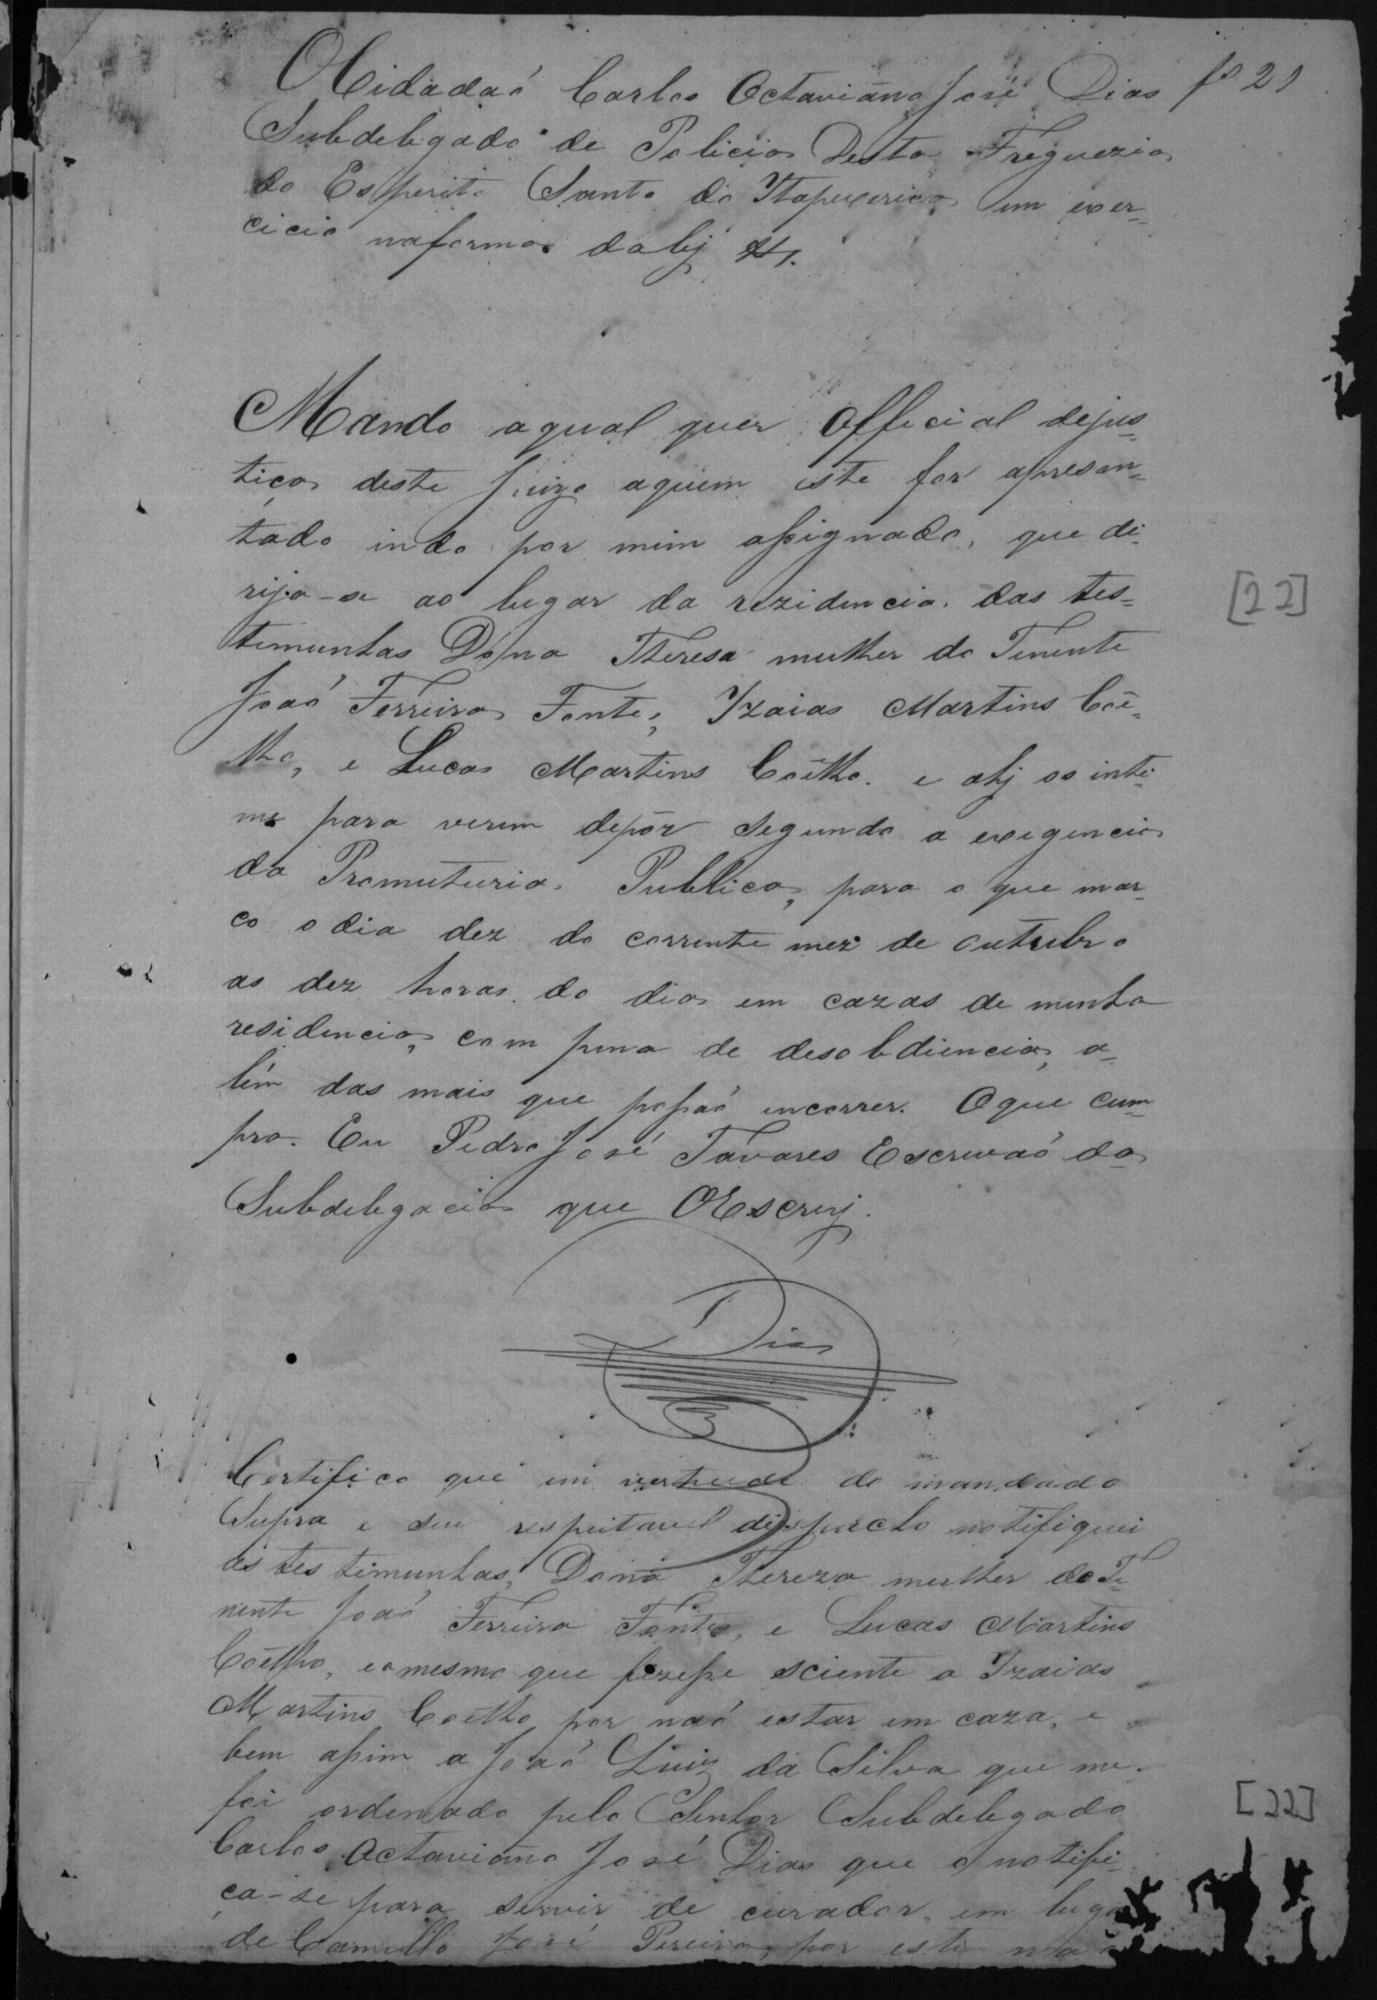 O Cidadaõ Carlos Octaviano José Dias fs 21
Subdelegado de Policia desta Freguezia
do Esperito Santo da Itapecerica em exer-
cicio naforma dalej &.
Mando aqual quer Official dejus-
tiça deste Juizo aquem este for apresen-
tado indo por mim assignado, que di-
rija-se ao lugar da rezidencia das tes-
timunhas Dona Theresa mulher do Tinente
Joaõ Ferreira Fontes, Izaias Martins Coe-
lho, e Lucas Martins Coêlho. e ahj os inti-
me para verem depôr segundo a exigencia
da Promuturia Publica, para o que mar-
co o dia dez do corrente mez de outubro
as dez horas do dia em cazas de minha
residencia, com pena de desobdiencia, a-
lém das mais que possaõ incorrer. Oque cum-
pra. Eu Pedro José Tavares Escrivaõ da
Subdelegacia que OEscrevj.
Dias
Certifico que em vertude do mandado
Supra e seu respeitavel despacho notifiquei
as testimunhas, Dona Thereza mulher do Te-
nente Joaõ Ferreira Fontes, e Lucas Martins
Coêlho, eomesmo que fizesse sciente a Izaias
Martins Coêlho por naõ estar em caza, e
bem assim a Joaõ Luiz da Silva que me
foi ordenado pelo Senhor Subdelegado
Carlos Octaviano José Dias que o notifi-
ca-se para servir de curador, em lugar
de Camillo José Pereira, por este naõ
[22]
[22]